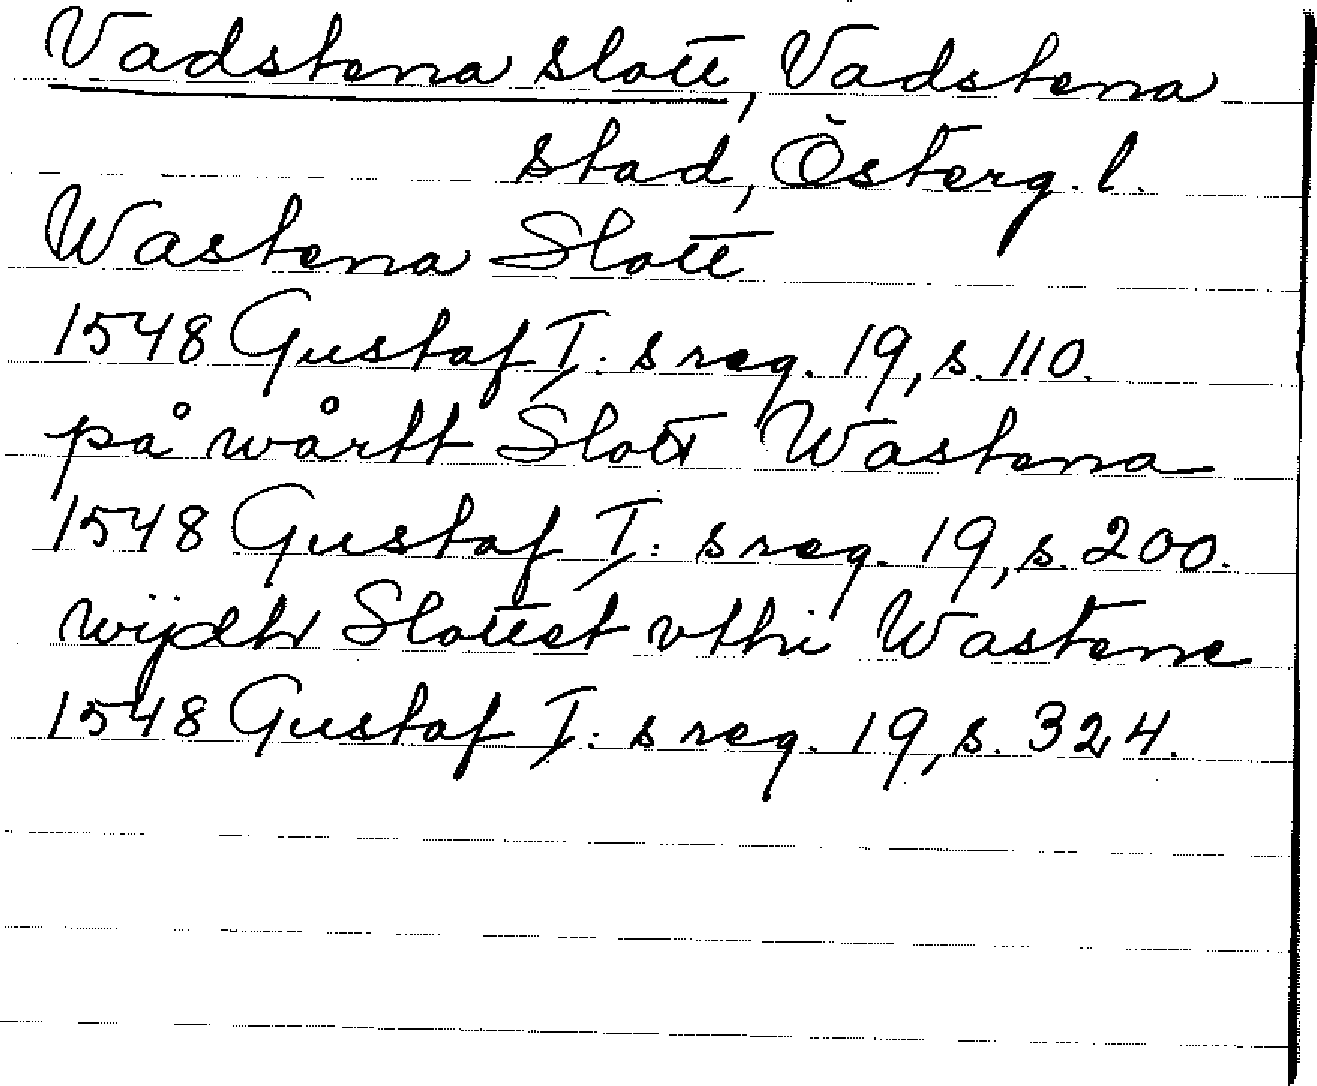 Vadstena slott, Vadstena
stad, Österg. l.
Wastena Slott
1548 Gustaf I: s reg. 19, s. 110.
på wårtt Slott Wastena
1548 Gustaf I: s reg. 19, s. 200.
wijdtt Slottet vthi Wastene
1548 Gustaf I: s reg. 19, s. 324.